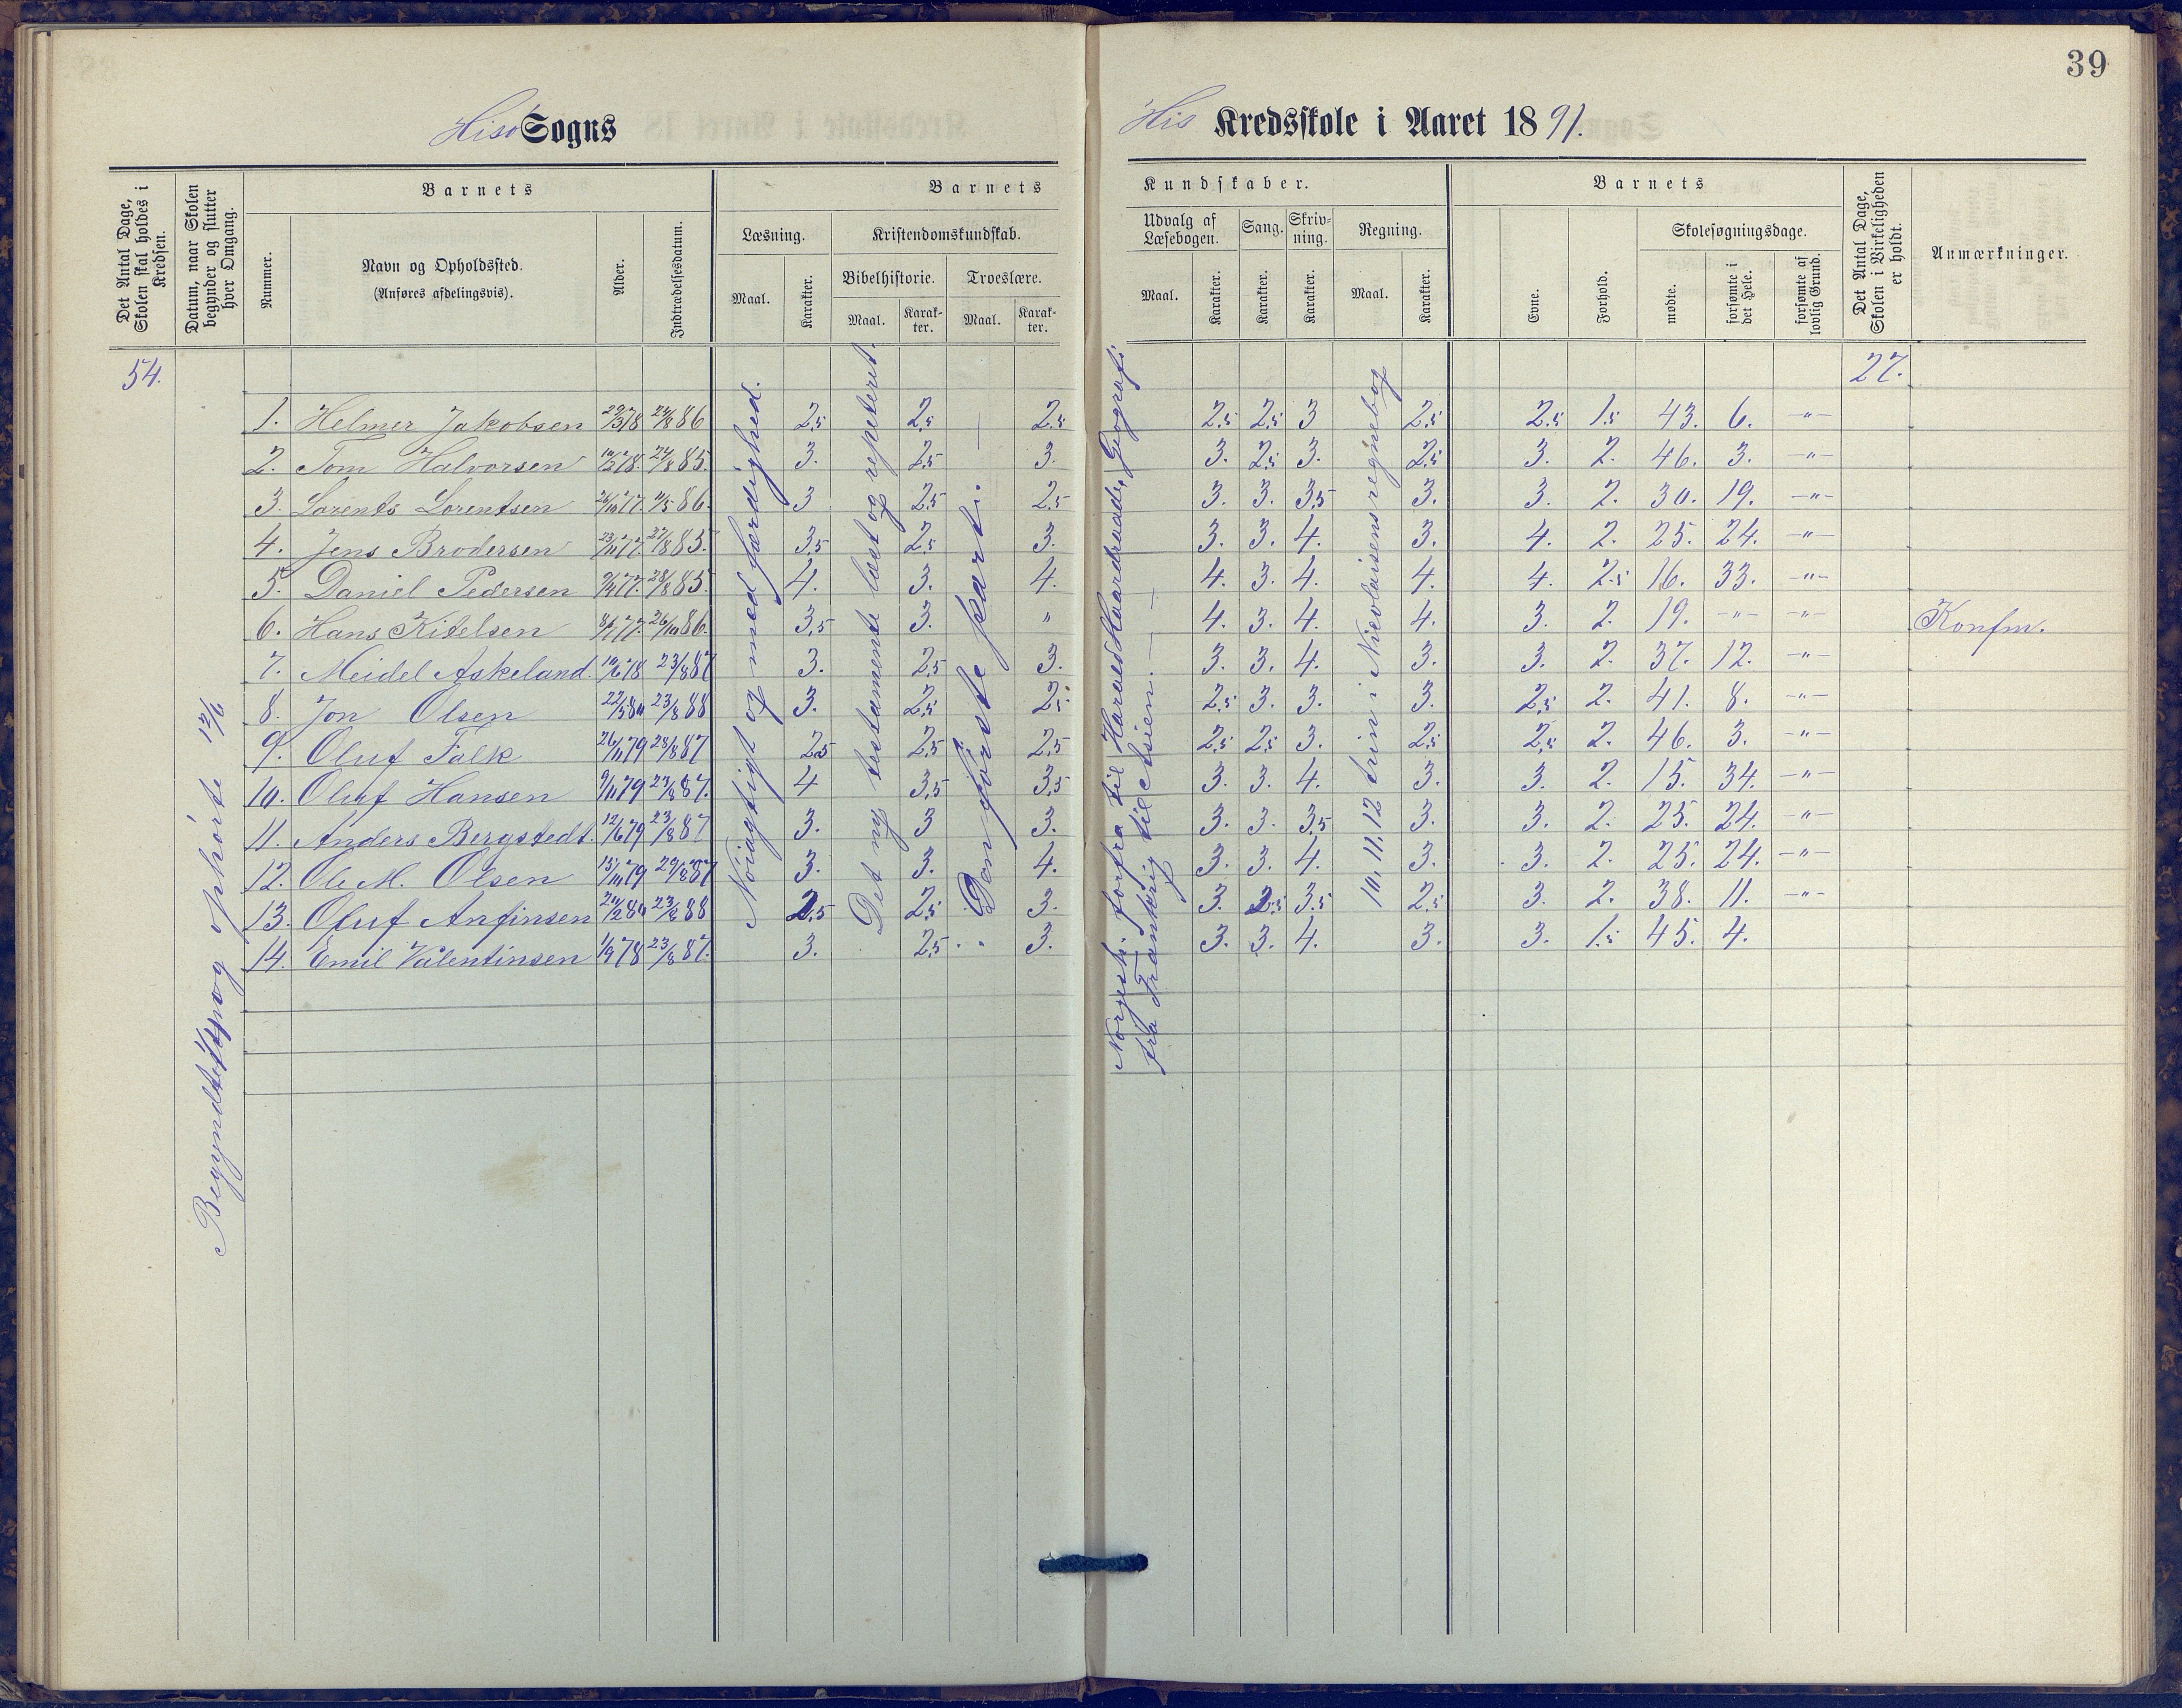 39
Hisø Sogns
His Kredsskole i Aaret 1891.
Det Antal Dage, Skolen skal holdes i Kredsen.
Datum, naar Skolen begynder og slutter hver Omgang.
Barnets
Nummer.
Navn og Opholdssted.
(Anføres afdelingsvis).
Alder.
Indtrædelsesdatum.
Barnets
Læsning.
Maal.
Karakter.
Kristendomskundskab.
Bibelhistorie.
Maal.
Karak-
ter.
Troeslære.
Maal.
Karak-
ter.
Kundskaber.
Udvalg af
Læsebogen.
Maal.
Karakter.
Sang.
Karakter.
Skriv-
ning.
Karakter.
Regning.
Maal.
Karakter.
Barnets
Evne.
Forhold.
Skolesøgningsdage.
mødte.
forsømte i det Hele.
forsømte af lovlig Grund.
Det Antal Dage, Skolen i Virkeligheden er holdt.
Anmærkninger.
54. 27.
og ophørte 12/6
Nøiagtigt og med færdighed.
Det ny testamente læst og repeteret.
Den første part i.
forfra til Harald Haardraade, Geografi
fra Frankrig til Asien.
10, 11, 12 trin i Nicolaisens regnebog
1. Helmer Jakobsen 29/3 78 24/8 86 2,5 2,5 2,5 2,5 2,5 3 2,5 2,5 1,5 43. 6. -"-
2. Tom Halvorsen 24/8 85. 3. 2,5 3. 3. 2,5 3. 2,5 3. 2. 46. 3. -"-
3. Lorents Lorentsen 26/10 77. 11/5 86. 3 2,5 2,5 3. 3. 3,5 3. 3. 2. 30. 19. -"-
4. Jens Brodersen 23/11 77. 27/8 85. 3,5 2,5 3. 3. 3. 4. 3. 4. 2. 25. 24. -"-
5. Daniel Pedersen 28/8 85. 4. 3. 4. 4. 3. 4. 4. 4. 2.5 16. 33. -"-
6. Hans Kitelsen 8/7 77. 26/10 86. 3,5 3. " 4. 3. 4. 4. 3. 2. 19. -"- -"- Konfm.
7. Meidel Askeland. 10/6 78 23/8 87 3. 2,5 3. 3. 3. 4. 3. 3. 2. 37. 12. -"-
8. Jon Olsen 22/5 80 23/8 88 3. 2,5 2,5 2,5 3. 3. 3. 2,5 2. 41. 8. -"-
9. Oluf Falk 26/11 79 28/8 87 2,5 2,5 2,5 2,5 2,5 3. 2,5 2,5 2. 46. 3. -"-
10. Oluf Hansen 9/11 79 23/8 87. 4 3,5 3,5 3. 3. 4. 3. 3. 2. 15. 34. -"-
11. Anders Bergstedt. 12/6 79 23/8 87 3. 3 3. 3. 3. 3,5 3. 3. 2. 25. 24. -"-
12. Ole M. Olsen 15/10 79 29/8 87 3. 3. 4. 3. 3. 4. 3. 3. 2. 25. 24. -"-
13. Oluf Anfinsen 20/2 80 23/8 88 2,5 2,5 3. 3. 2,5 3.5 2,5 3. 2. 38. 11. -"-
14. Emil Valentinsen 1/9 78 23/8 87. 3. 2,5 3. 3. 3. 4. 3. 3. 1.5 45. 4.